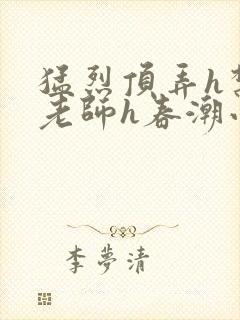 猛烈頂弄h
老師h春潮
李夢清